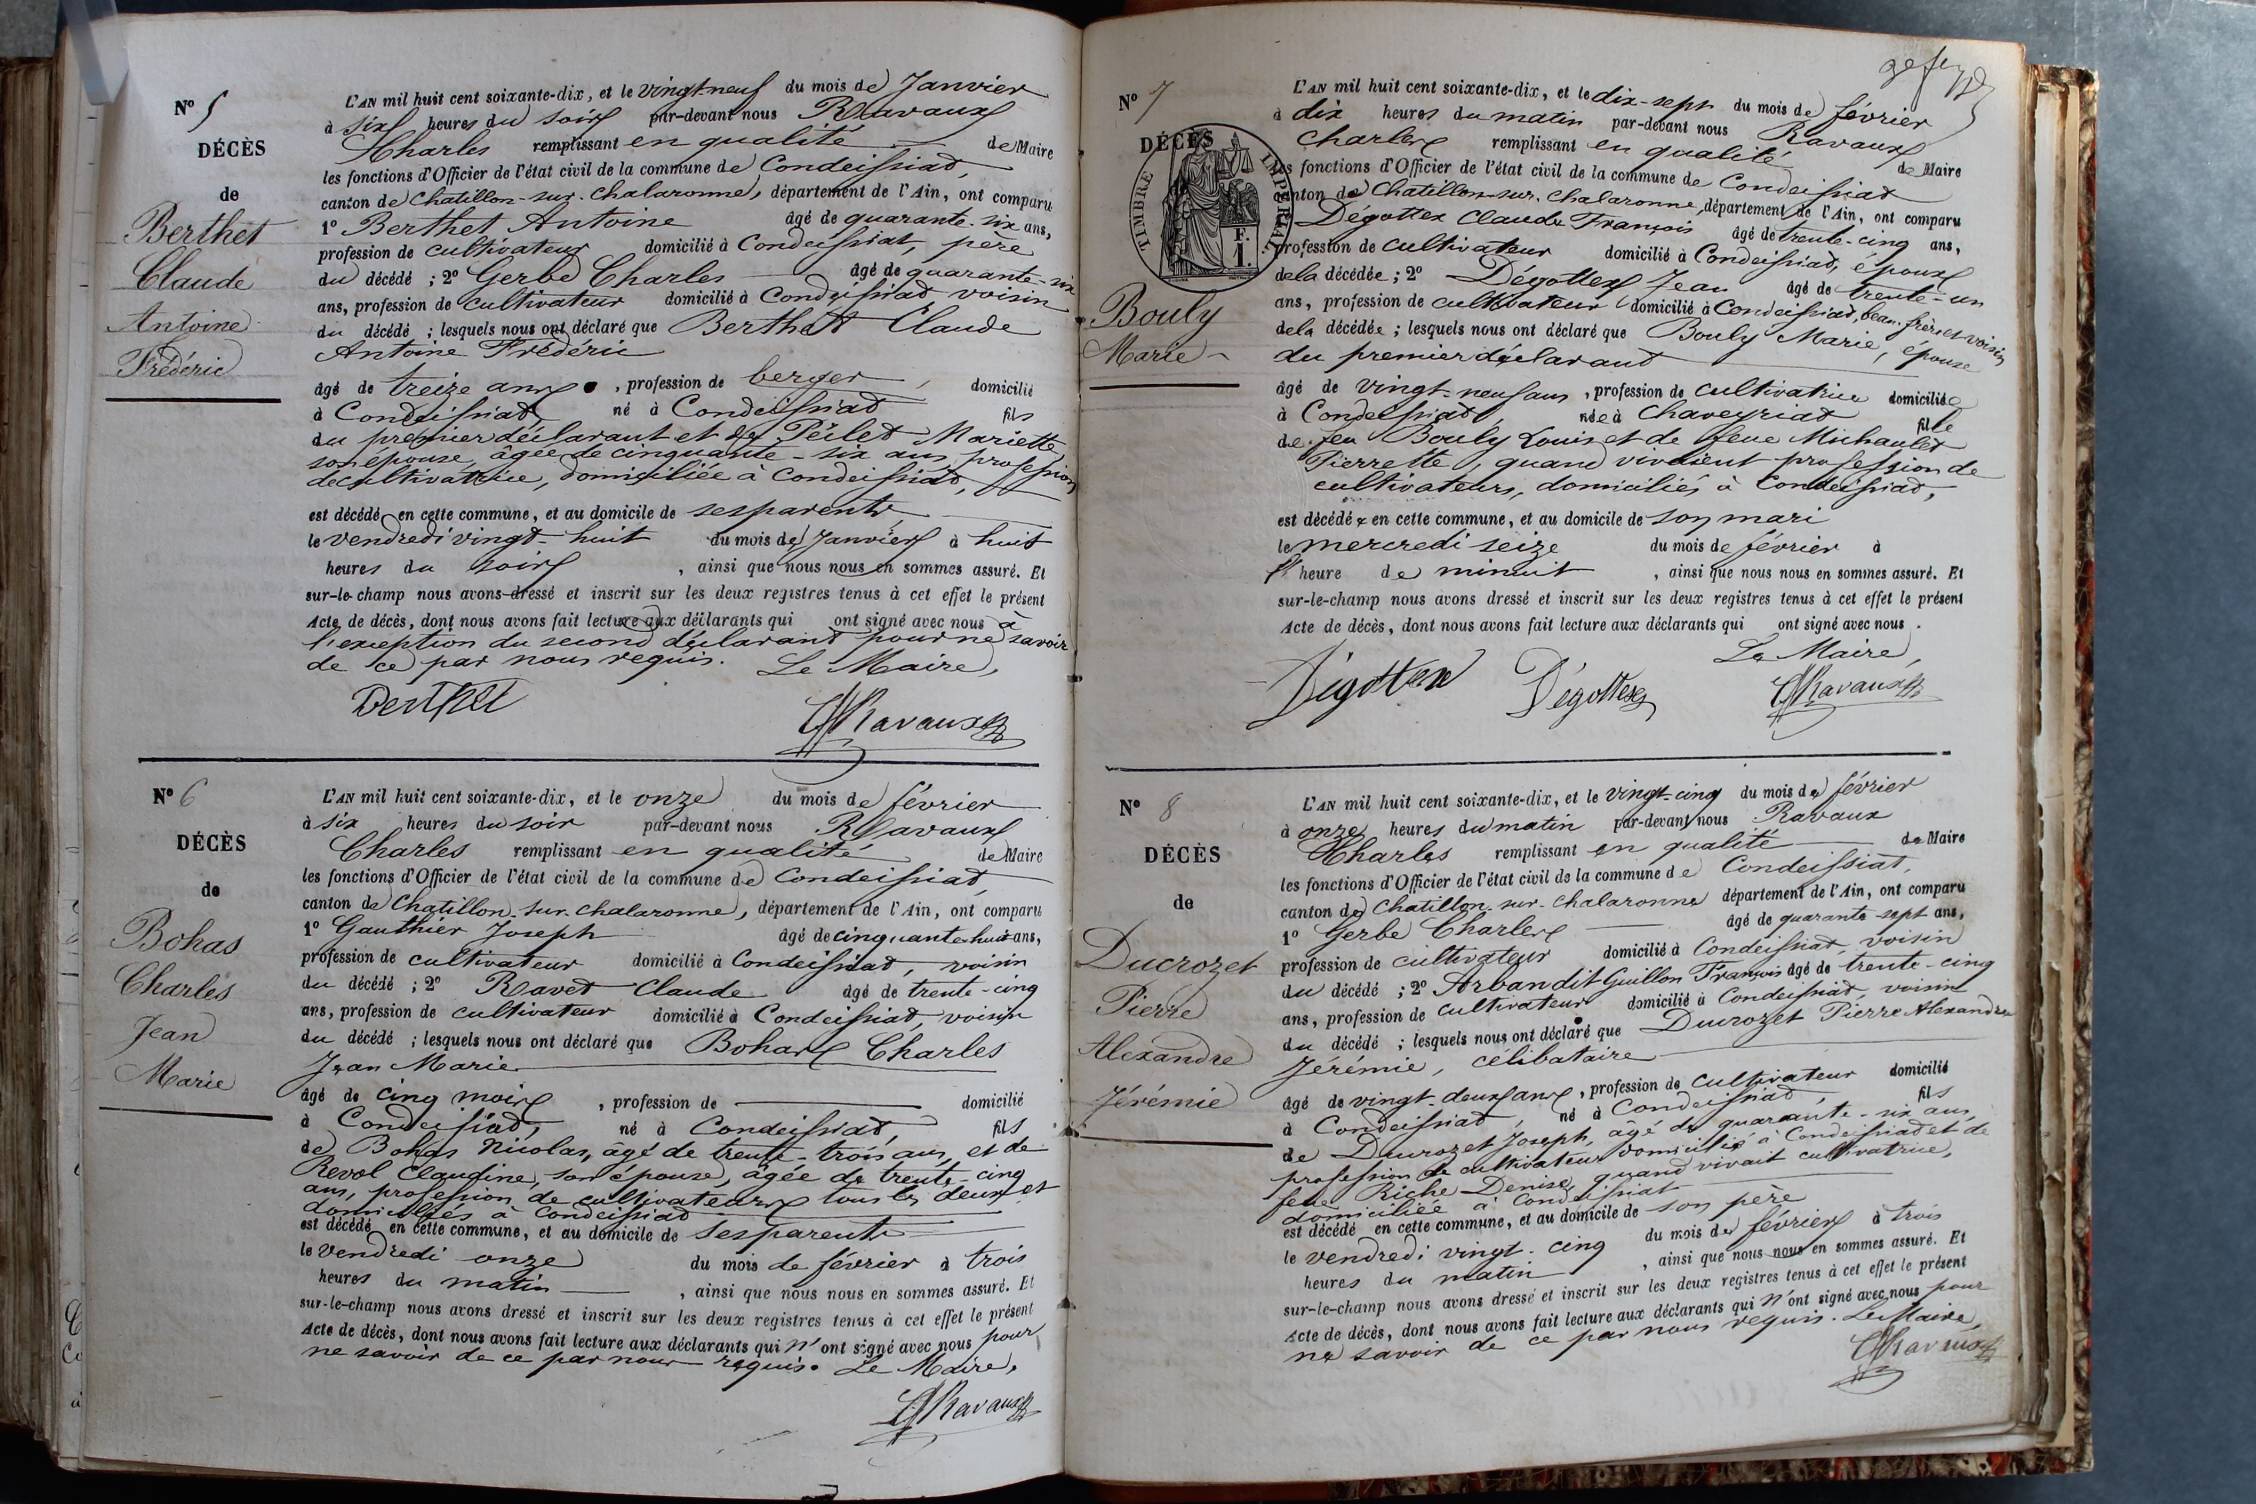 N° 5
DÉCÈS
de
Berthet
Claude
Antoine
Frédéric
L'AN mil huit cent soixante-dix, et le vingt-neuf du mois de Janvier
à six heures du soir par-devant nous Ravaux
Charles remplissant en qualité de Maire
les fonctions d'Officier de l'état civil de la commune de Condeissiat,
canton de Chatillon-sur-Chalaronne, département de l'Ain, ont comparu
1° Berthet Antoine âgé de quarante-six ans,
profession de cultivateur domicilié à Condeissiat, père
du décédé ; 2° Gerbe Charles âgé de quarante-six
ans, profession de cultivateur domicilié à Condeissiat voisin
du décédé ; lesquels nous ont déclaré que Berthet Claude
Antoine Frédéric
âgé de treize ans , profession de berger , domicilié
à Condeissiat né à Condeissiat fils
du premier déclarant et de Péilet Mariette
son épouse, âgée de cinquante-six ans, profession
de cultivatrice, domiciliée à Condeissiat,
est décédé en cette commune, et au domicile de ses parents
le vendredi vingt-huit du mois de Janvier à huit
heures du soir , ainsi que nous nous en sommes assuré. Et
sur-le-champ nous avons dressé et inscrit sur les deux registres tenus à cet effet le présent
Acte de décès, dont nous avons fait lecture aux déclarants qui ont signé avec nous à
l'exception du second déclarant pour ne savoir
de ce par nous requis. Le Maire,
Berthet
Ravaux
N° 6
DÉCÈS
de
Bohas
Charles
Jean
Marie
L'AN mil huit cent soixante-dix, et le onze du mois de février
à six heures du soir par-devant nous Ravaux
Charles remplissant en qualité de Maire
les fonctions d'Officier de l'état civil de la commune de Condeissiat,
canton de Chatillon-sur-Chalaronne, département de l'Ain, ont comparu
1° Gauthier Joseph âgé de cinquante-huit ans,
profession de cultivateur domicilié à Condeissiat, voisin
du décédé ; 2° Ravet Claude âgé de trente-cinq
ans, profession de cultivateur domicilié à Condeissiat, voisin
du décédé ; lesquels nous ont déclaré que Bohas Charles
Jean Marie
âgé de cinq mois , profession de domicilié
à Condeissiat, né à Condeissiat fils
de Bohas Nicolas, âgé de trente-trois ans, et de
Revol Claudine, son épouse, âgée de trente-cinq
ans, profession de cultivateurs tous les deux et
domiciliés à Condeissiat
est décédé en cette commune, et au domicile de ses parents
le vendredi onze du mois de février à trois
heures du matin , ainsi que nous nous en sommes assuré. Et
sur-le-champ nous avons dressé et inscrit sur les deux registres tenus à cet effet le présent
Acte de décès, dont nous avons fait lecture aux déclarants qui n'ont signé avec nous pour
ne savoir de ce par nous requis. Le Maire,
Ravaux
N° 7
DÉCÈS
TIMBRE IMPÉRIAL
F.
1.
Bouly
Marie
L'AN mil huit cent soixante-dix, et le dix-sept du mois de février
à dix heures du matin par-devant nous Ravaux
Charles remplissant en qualité de Maire
les fonctions d'Officier de l'état civil de la commune de Condeissiat
canton de Chatillon-sur-Chalaronne, département de l'Ain, ont comparu
Dégottex Claude François âgé de trente-cinq ans,
profession de cultivateur domicilié à Condeissiat, époux
de la décédée ; 2° Dégottex Jean âgé de trente-un
ans, profession de cultivateur domicilié à Condeissiat, beau-frère et voisin
de la décédée ; lesquels nous ont déclaré que Bouly Marie, épouse
du premier déclarant
âgé de vingt-neuf ans , profession de cultivatrice domiciliée
à Condeissiat née à Chaveyriat fille
de feu Bouly Louis et de feue Michaulet
Pierrette, quand vivaient profession de
cultivateurs, domiciliés à Condeissiat,
est décédée en cette commune, et au domicile de son mari
le mercredi seize du mois de février à
l'heure de minuit , ainsi que nous nous en sommes assuré. Et
sur-le-champ nous avons dressé et inscrit sur les deux registres tenus à cet effet le présent
Acte de décès, dont nous avons fait lecture aux déclarants qui ont signé avec nous .
Le Maire,
Dégottex Dégottex Ravaux
N° 8
DÉCÈS
de
Ducrozet
Pierre
Alexandre
Jérémie
L'AN mil huit cent soixante-dix, et le vingt-cinq du mois de février
à onze heures du matin par-devant nous Ravaux
Charles remplissant en qualité de Maire
les fonctions d'Officier de l'état civil de la commune de Condeissiat,
canton de Chatillon-sur-Chalaronne département de l'Ain, ont comparu
1° Gerbe Charles âgé de quarante-sept ans,
profession de cultivateur domicilié à Condeissiat, voisin
du décédé ; 2° Arbandit Guillon François âgé de trente-cinq
ans, profession de cultivateur domicilié à Condeissiat, voisin
du décédé ; lesquels nous ont déclaré que Ducrozet Pierre Alexandre
Jérémie, célibataire
âgé de vingt-deux ans, profession de cultivateur domicilié
à Condeissiat, né à Condeissiat, fils
de Ducrozet Joseph, âgé de quarante-six ans,
profession de cultivateur domicilié à Condeissiat et de
feue Riche Denise, quand vivait cultivatrice,
domiciliée à Condeissiat
est décédé en cette commune, et au domicile de son père
le vendredi vingt-cinq du mois de février à trois
heures du matin , ainsi que nous nous en sommes assuré. Et
sur-le-champ nous avons dressé et inscrit sur les deux registres tenus à cet effet le présent
Acte de décès, dont nous avons fait lecture aux déclarants qui n'ont signé avec nous pour
ne savoir de ce par nous requis. Le Maire,
Ravaux